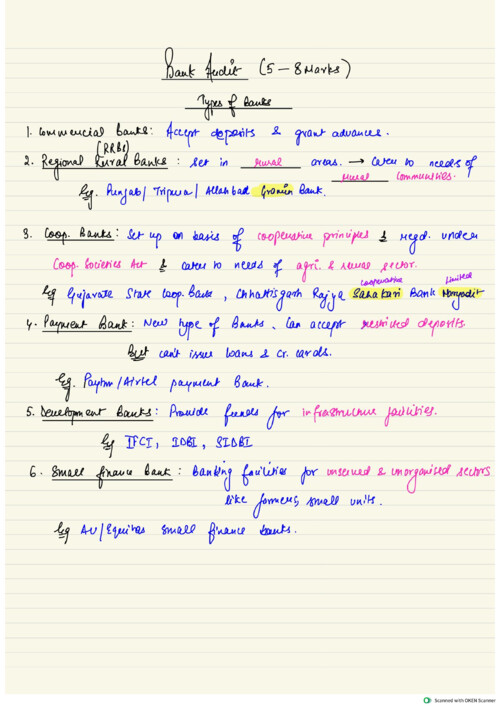 Bank Audit (5 – 8 Marks)
Types of Banks
1. Commercial Banks: Accept deposits & grant advances.
(RRBs)
2. Regional Rural Banks : Set in rural areas. → Cater to needs of
rural communities.
Eg. Punjab/ Tripura/ Allahbad Gramin Bank.
3. Coop. Banks: Set up on basis of cooperative principles & regd. under
Coop. Societies Act & cater to needs of agri. & rural sector.
cooperative Limited
Eg Gujarat State Coop. Bank, Chhattisgarh Rajya Sahakari Bank
4. Payment Bank: New type of Banks. Can accept restricted deposits
But can't issue loans & Cr. cards.
Eg. Paytm/Airtel payment Bank.
5. Development Banks: Provide funds for infrastructure facilities.
Eg IFCI, IDBI, SIDBI
6. Small finance Bank : Banking facilities for unserved & unorganised sectors
like farmers, small units.
Eg AU/Equitas small finance banks.
Scanned with OKEN Scanner